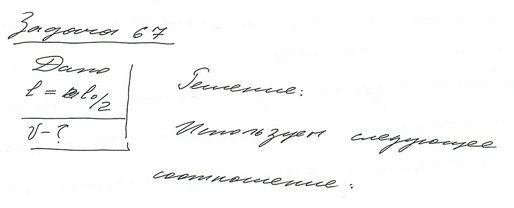 Задача 67
Дано
l = l₀/2
v - ?
Решение:
Используем следующее
соотношение: